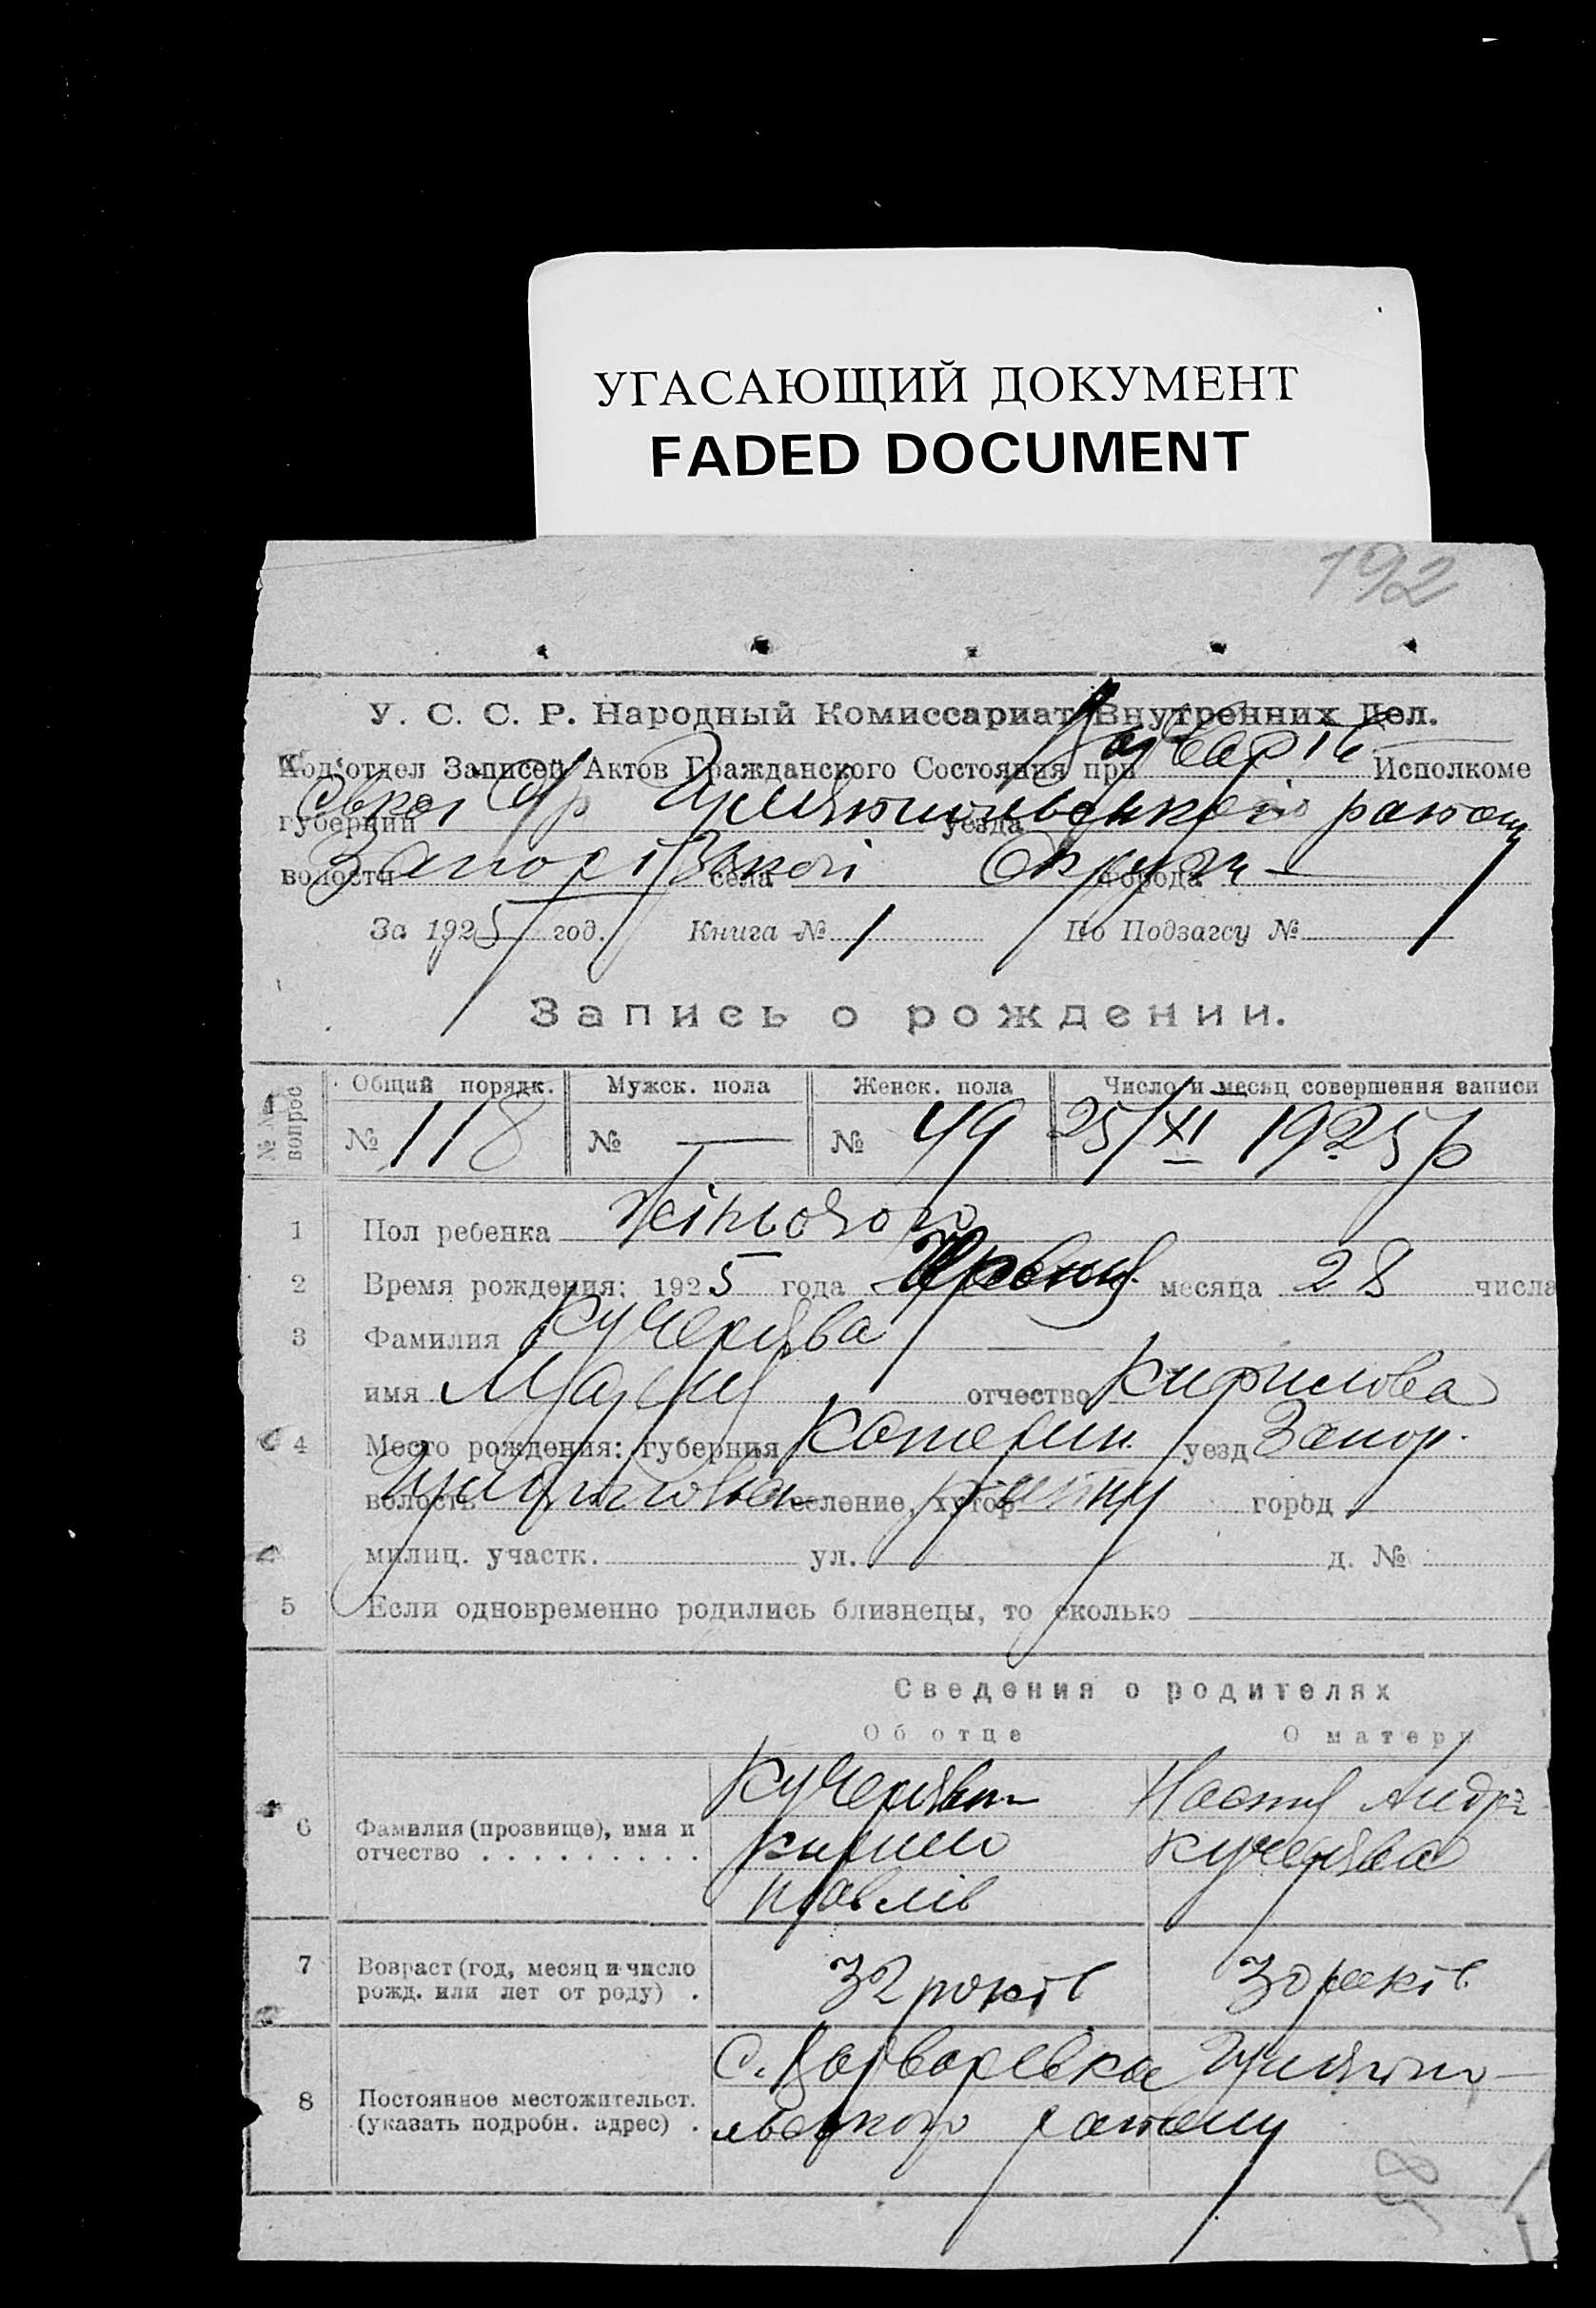 УГАСАЮЩИЙ ДОКУМЕНТ
FADED DOCUMENT
192
У. С. С. Р. Народный Комиссариат Внутренних Дел.
Подотдел Записей Актов Гражданского Состояния при Варварів Исполкоме
губернии уезда району
волости Запорізької села Округи города
За 1925 год. Книга № 1 По Подзагсу №
Запись о рождении.
№№ вопрос Общий порядк. Мужск. пола Женск. пола Число и месяц совершения записи
№ 118 № — № 49 25/XI 1925 р
1 Пол ребенка жіночого
2 Время рождения: 1925 года месяца 28 числа
3 Фамилия Кучерява
имя Марія отчество Кирилова
4 Место рождения: губерния Катерин. уезд Запор.
волость селение, хутор району город
милиц. участк. ул. д. №
5 Если одновременно родились близнецы, то сколько
Сведения о родителях
Об отце О матери
6 Фамилия (прозвище), имя и отчество Кучерявий Кирило Павлів Настя Андр Кучерява
7 Возраст (год, месяц и число рожд. или лет от роду) . 32 років 30 років
8 Постоянное местожительст. (указать подробн. адрес) . с. Варваровка Гуляйпольського району
18